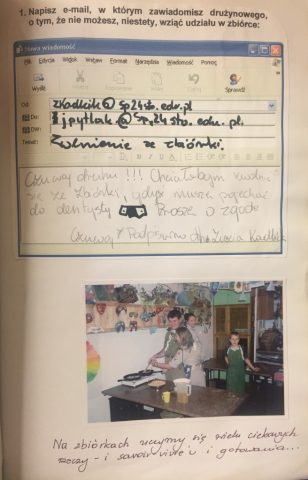 1. Napisz e-mail, w którym zawiadomisz drużynowego,
o tym, że nie możesz, niestety, wziąć udziału w zbiórce:
Nowa wiadomość
Plik Edycja Widok Wstaw Format Narzędzia Wiadomość Pomoc
Wyślij Wytnij Kopiuj Wklej Cofnij Sprawdź
Od: zkadlcik@sp24sto.edu.pl
Do: jpytlak@sp24sto.edu.pl.
Dw:
Temat: Zwolnienie ze zbiórki.
Czuwaj druhu!!! Chciałabym zwolnić
się ze zbiórki, gdyż muszę pojechać
do dentysty Proszę o zgodę
Czuwaj
Na zbiórkach uczymy się wielu ciekawych
rzeczy - i savoir-vivre'u i gotowania...